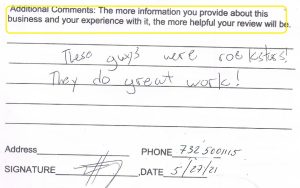 Additional Comments: The more information you provide about this
business and your experience with it, the more helpful your review will be.
These guys were rockstars!
They do great work!
Address PHONE 732 5001115
SIGNATURE ,DATE 5/27/21